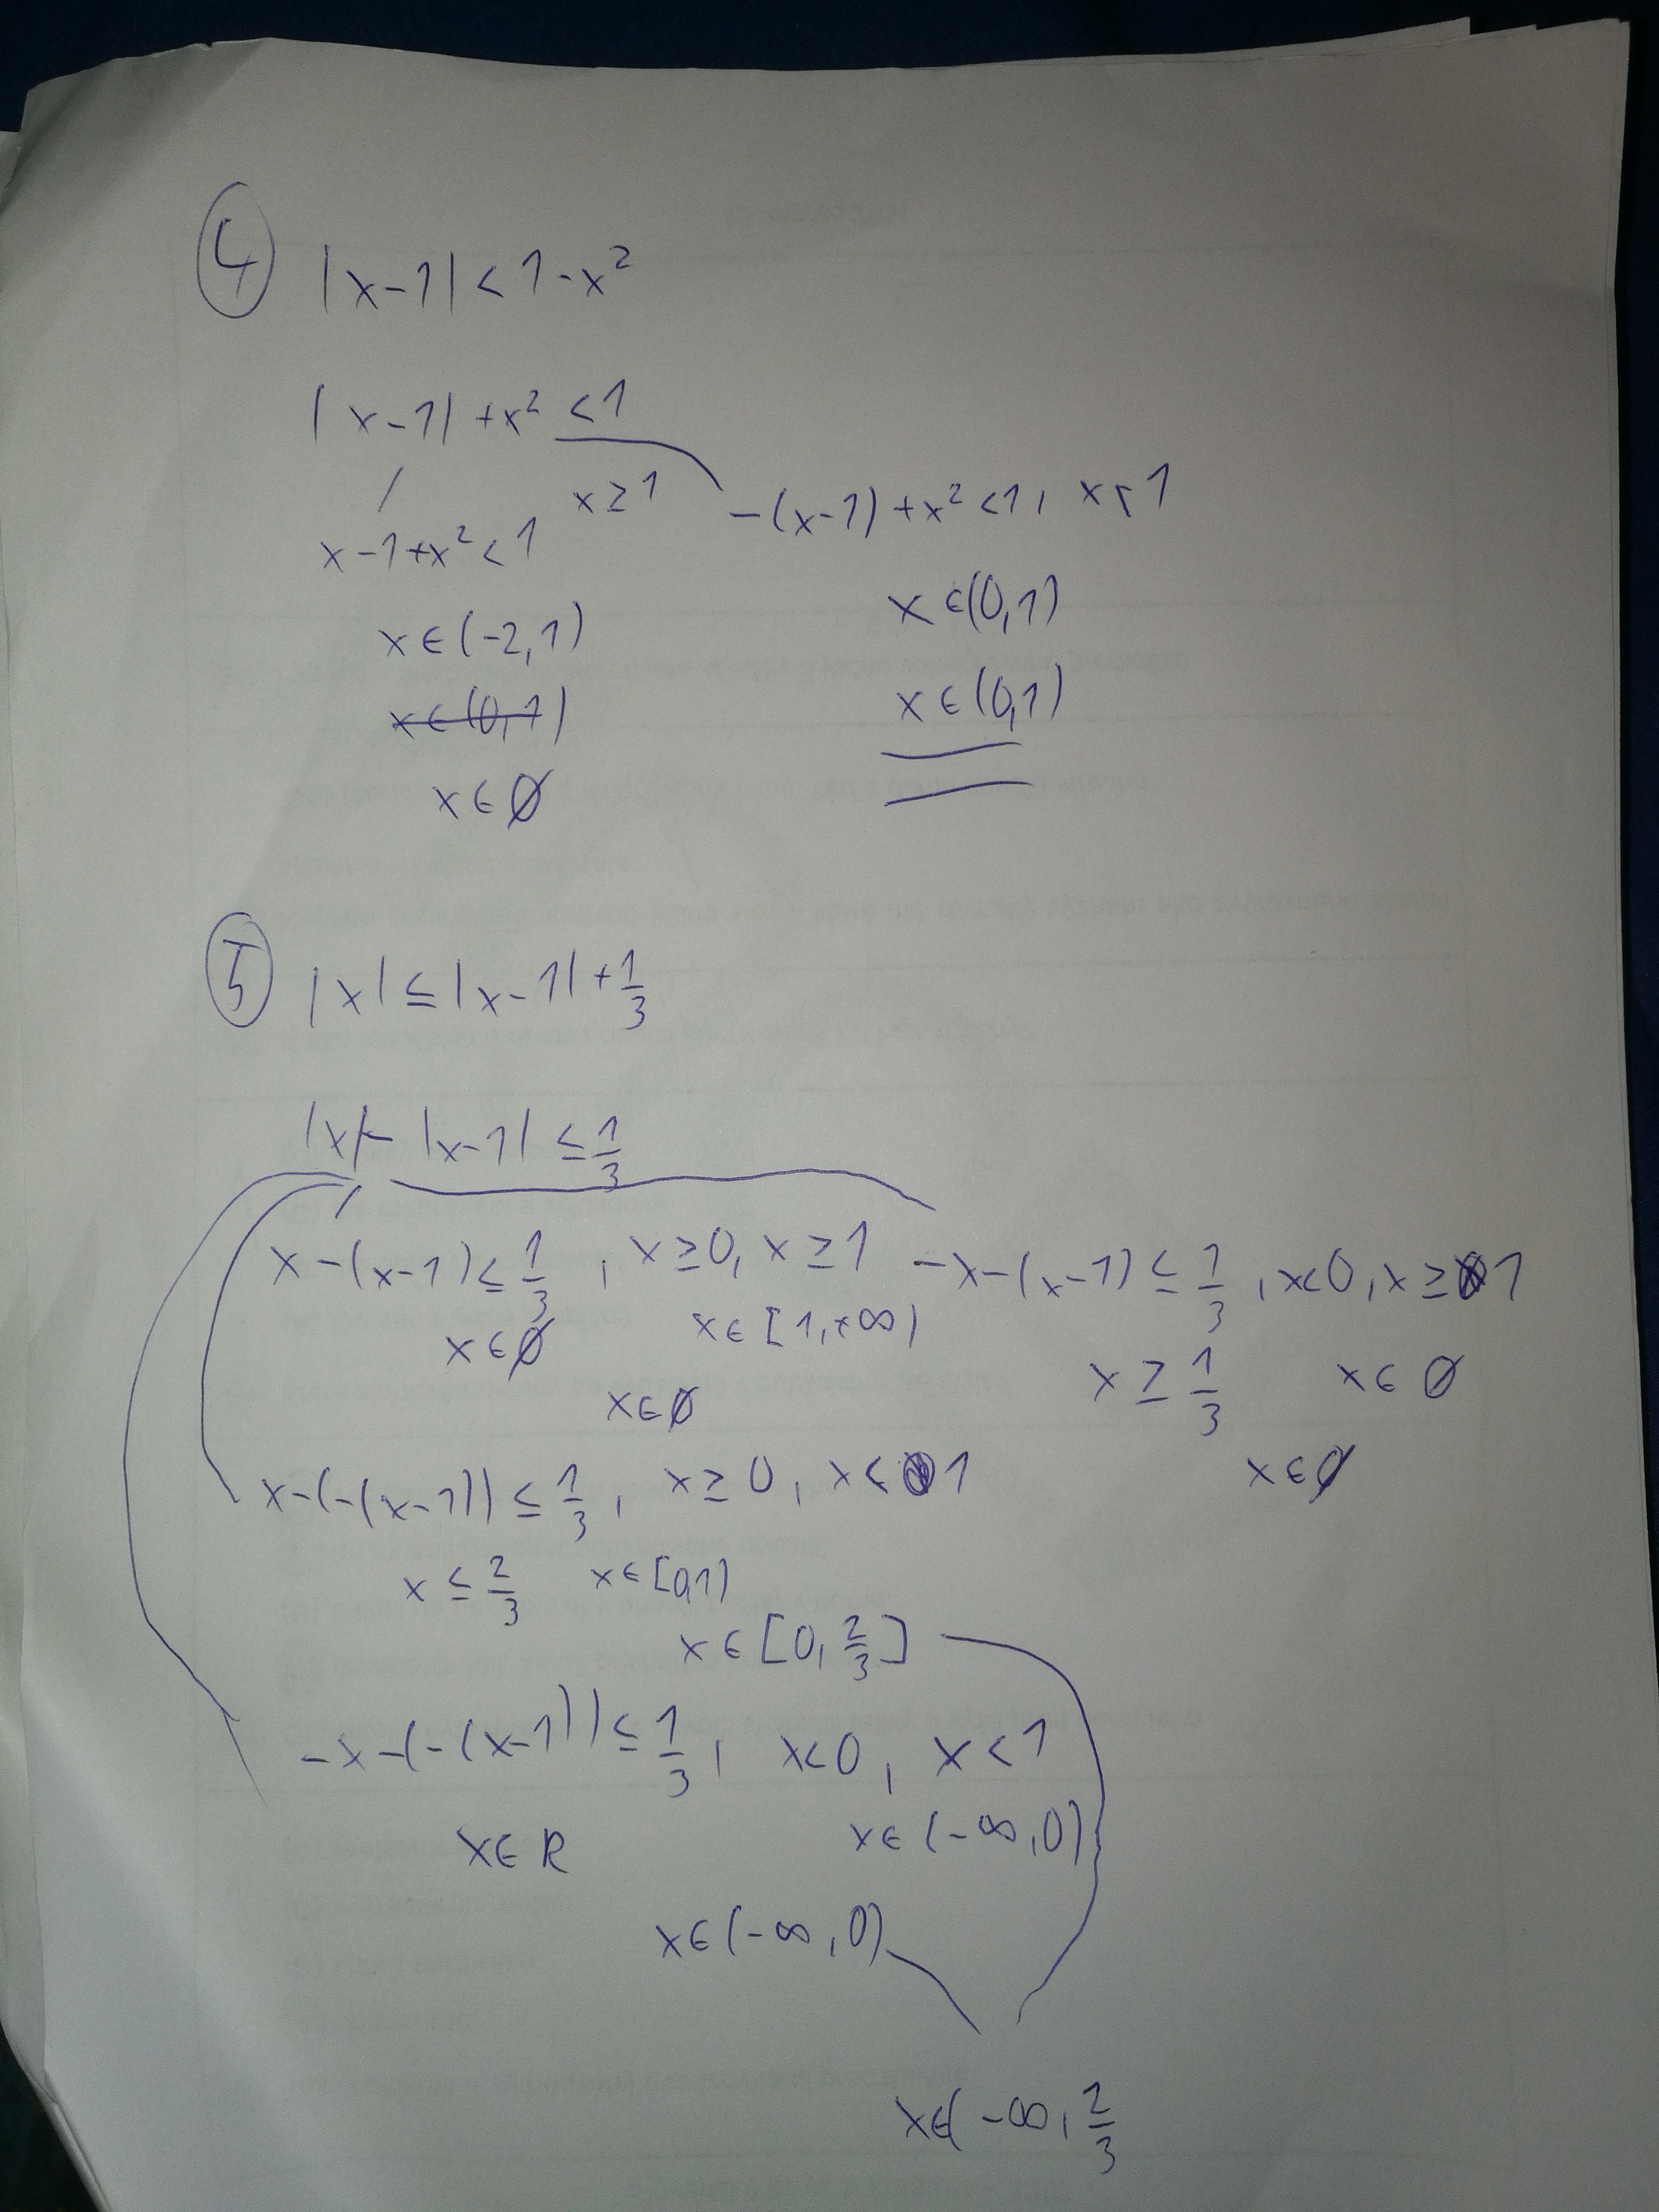 4
|x-1| < 1-x²
|x-1| + x² < 1
x ≥ 1
-(x-1) + x² < 1, x < 1
x-1+x² < 1
x ∈ (0,1)
x ∈ (-2,1)
x ∈ (0,1)
x ∈ (0,1)
x ∈ ∅
5
|x| ≤ |x-1| + 1/3
|x| - |x-1| ≤ 1/3
x-(x-1) ≤ 1/3, x ≥ 0, x ≥ 1
-x-(x-1) ≤ 1/3, x<0, x ≥ 1
x ∈ ∅
x ∈ [1,+∞)
x ≥ 1/3
x ∈ ∅
x ∈ ∅
x ∈ ∅
x-(-(x-1)) ≤ 1/3, x ≥ 0, x < 1
x ≤ 2/3
x ∈ [0,1)
x ∈ [0, 2/3]
-x-(-(x-1)) ≤ 1/3, x<0, x<1
x ∈ R
x ∈ (-∞,0)
x ∈ (-∞,0)
x ∈ (-∞, 2/3